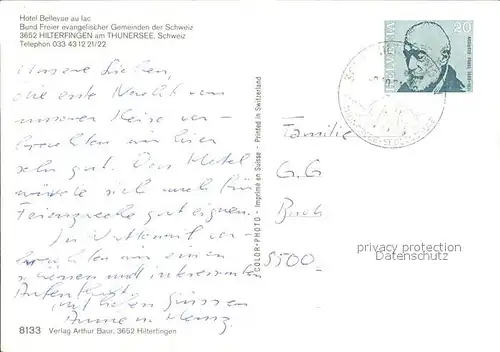 Hotel Bellevue au lac
Bund Freier evangelischer Gemeinden der Schweiz
3652 HILTERFINGEN am THUNERSEE, Schweiz
Telephon 033 43 12 21/22
Unsere Lieben,
die erste Nacht von
unserer Reise ver-
brachten wir hier
sehr gut. Das Hotel
würde sich auch für
Ferienzwecke gut eignen.
In ver-
brachten wir einen
schönen und interessanten
Aufenthalt.
mit lieben Grüssen
Anne u. Heinz.
8133 Verlag Arthur Baur, 3652 Hilterfingen
COLOR-PHOTO - Imprimé en Suisse - Printed in Switzerland
HELVETIA
20
Familie
G. G
privacy protection
DATENSCHUTZ